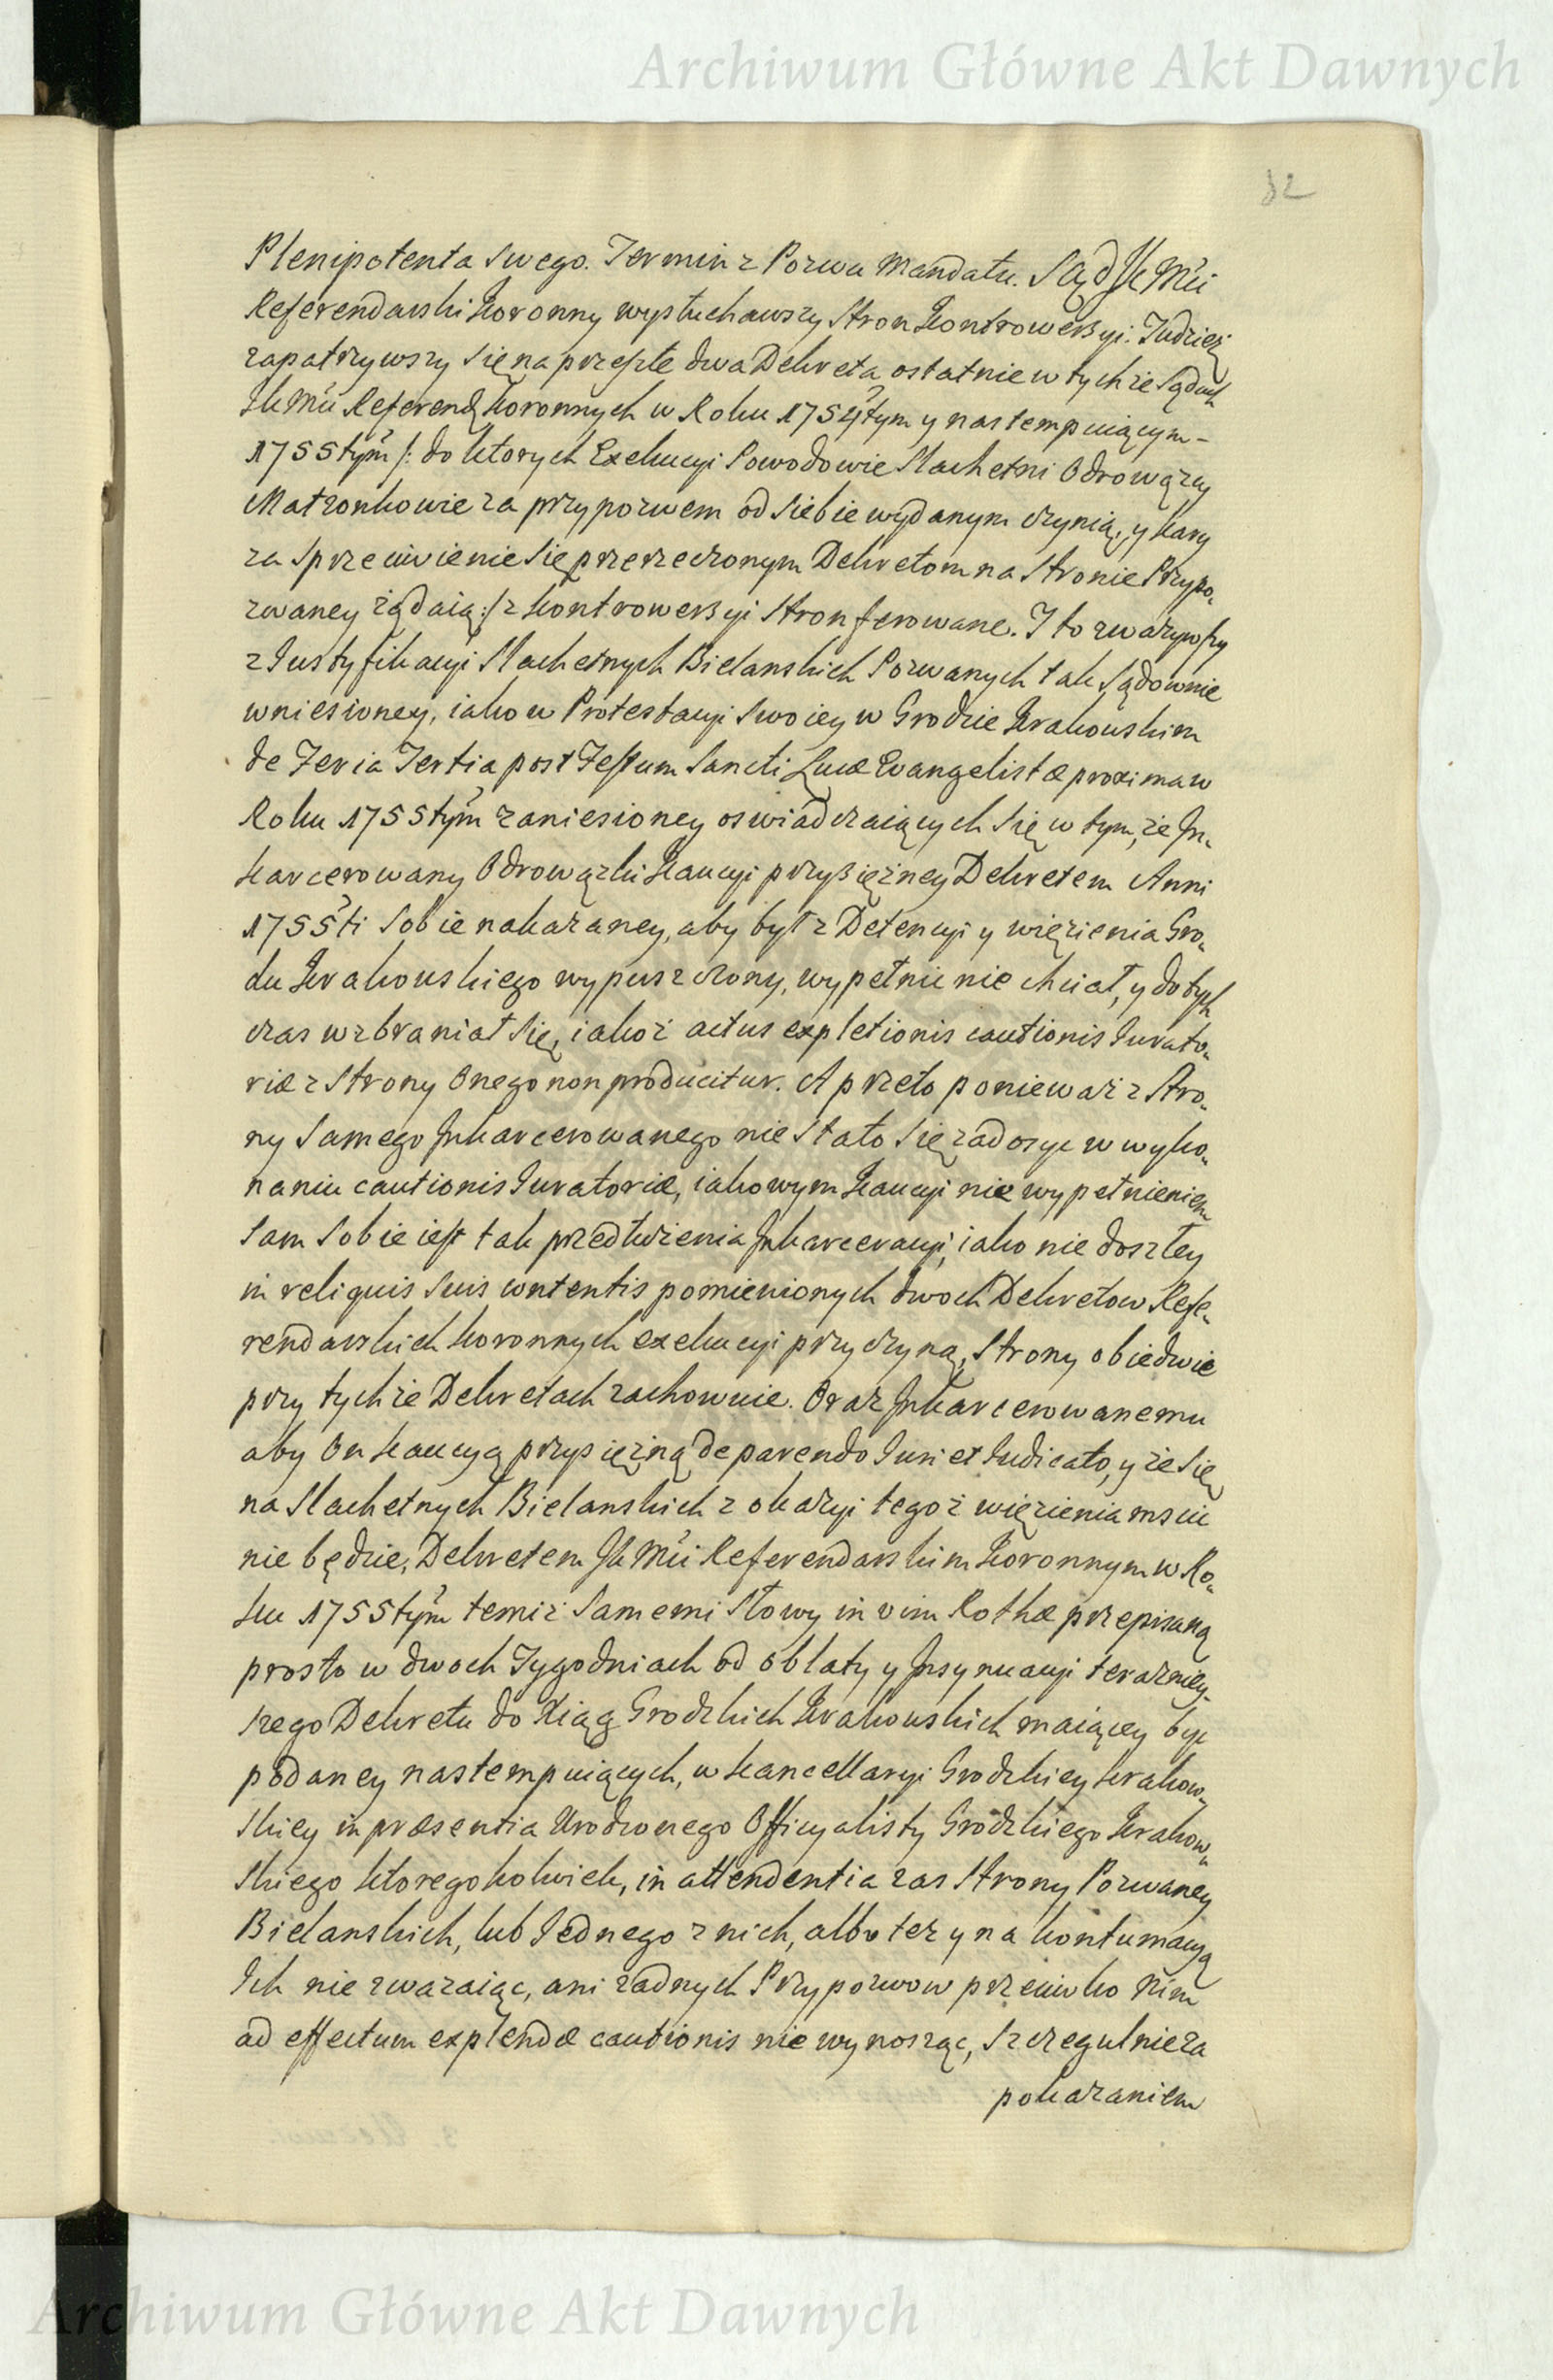 Archiwum Główne Akt Dawnych
32
Plenipotenta Swego. Termin z Pozwu Mandatu. Sąd JK Mci
Referendarski Koronny wysłuchawszy Stron Kontrowersyi. Tudziesz
zapatrzywszy się na przeszłe dwa Dekreta ostatnie w tychże Sądach
JK Mci Referend. Koronnych w Roku 1754tym y nastempuiącym-
1755tym /: do ktorych Exekucyi Powodowie Slachetni Odrowązcy
Małzonkowie za przypozwem od siebie wydanym czynią, y kary
za Sprzeciwienie się przerzeczonym Dekretom na Stronie Przypo„
zwaney żądaią :/ z Kontrowersyi Stron ferowane. I to zważywszy
z Justyfikacyi Slachetnych Bielanskich Pozwanych tak Sądownie
wniesioney, iako w Protestacyi Swoiey w Grodzie Krakowskim
de Feria Tertia post Festum Sancti Lucæ Evangelistæ proxima w
Roku 1755tym zaniesioney oswiadczaiących się w tym, że In„
karcerowany Odrowązki Kaucyi przysiężney Dekretem Anni
1755ti Sobie nakazaney, aby był z Detencyi y więzienia Gro„
du Krakowskiego wypuszczony, wypełnic nie chciał, y dotych
czas wzbraniał się, iakoż actus expletionis cautionis Jurato„
riæ z Strony Onego non producitur. A przeto ponieważ z Stro„
ny Samego Inkarcerowanego nie Stało się zadosyc w wyko„
naniu cautionis Juratoriæ, iakowym Kaucyi nie wypełnieniem
Sam Sobie iest tak przedłużenia Inkarceracyi, iako nie doszłey
in reliquis Suis contentis pomienionych dwoch Dekretow Refe„
rendarskich Koronnych exekucyi przyczyną, Strony obiedwie
przy tychże Dekretach zachowuie. Oraz Inkarcerowanemu
aby On Kaucyą przysiężną de parendo Juri et Judicato, y że się
na Slachetnych Bielanskich z okazyi tegoż więzienia mscic
nie będzie, Dekretem JK Mci Referendarskim Koronnym w Ro„
ku 1755tym temiż Samemi Słowy in vim Rothæ przepisaną
prosto w dwoch Tygodniach od oblaty y Insynuacyi terazniey-
szego Dekretu do Xiąg Grodzkich Krakowskich maiącey byc
podaney nastempuiących, w Kancellaryi Grodzkiey Krakow„
skiey in præsentia Urodzonego Officyalisty Grodzkiego Krakow„
skiego ktoregokolwiek, in attendentia zas Strony Pozwaney
Bielanskich, lub Jednego z nich, albo też y na kontumacyą
Ich nie zwazaiąc, ani żadnych Przypozwow przeciwko Nim
ad effectum explendæ cautionis nie wynosząc, Szczegulnie za
pokazaniem
Archiwum Główne Akt Dawnych